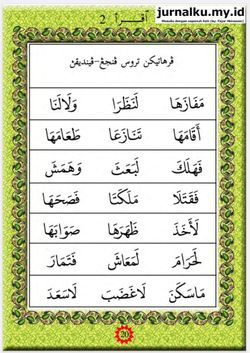 jurnalku.my.id
اقرأ 2
ڤرهاتيكن تروس ڤنجڠ-ڤينديقڽ
مَفَازَهَا لَنَظَرَا وَلَالَنَا
أَقَامَهَا تَنَازَعَا طَعَامَهَا
فَهَلَكَ لَبَعَثَ وَهَمَشَ
فَقَتَلَا مَلَكَتَا فَضَحَهَا
لَأَخَذَ ظَهَرَهَا صَوَابَهَا
لَحَرَامَ لَمَعَاشَ فَتَمَازَ
مَاسَكَنَ لَاغَضَبَ لَاسَعَدَ
20